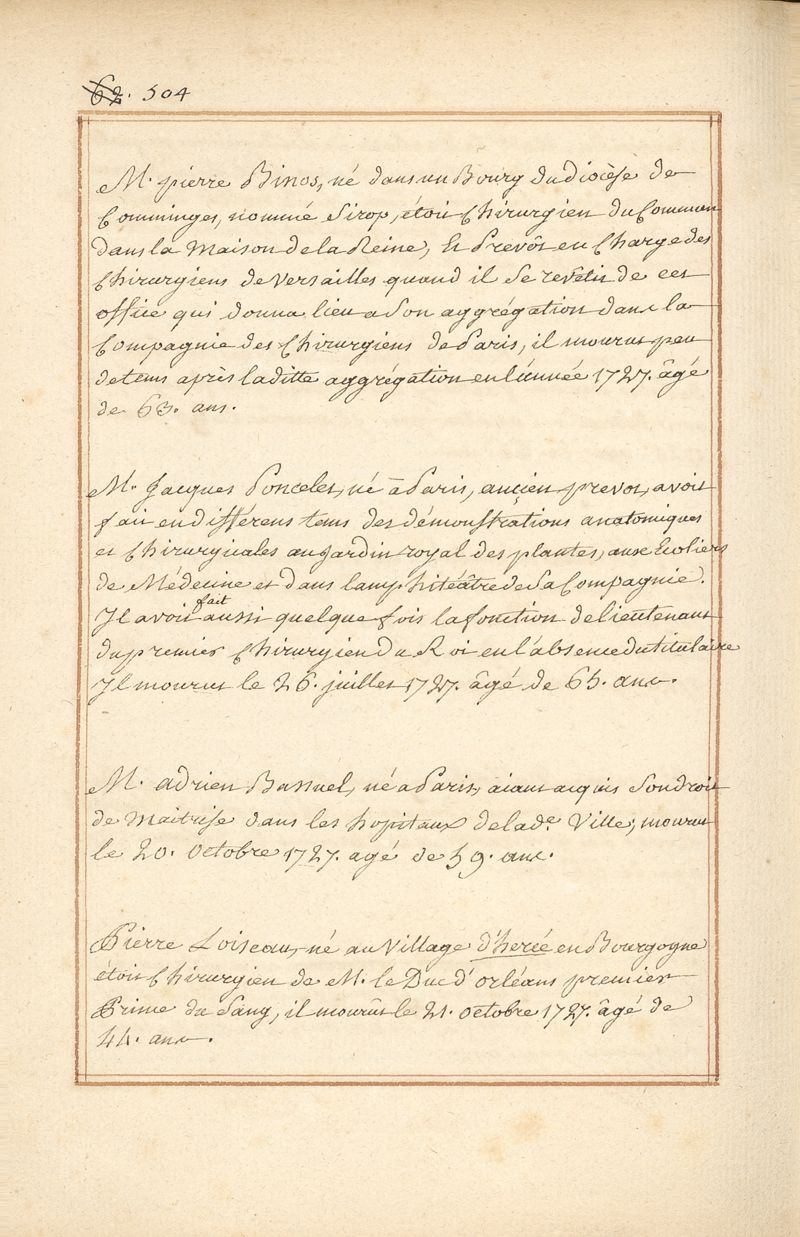 62. 504
M. pierre Binos, né dans un Bourg du diocèse de
Comminges, nommé Sirop, étoit Chirurgien du Commun
dans la Maison de la Reine, Et Prevôt en Charge des
Chirurgiens de Versailles quand il se revêtit de cet
office qui donna lieu a son aggrégation dans la
Compagnie des Chirurgiens de Paris, il mourut peu
de tems après la ditte aggrégation en l'année 1727. âgé
de 63. ans.
M. Jacques Poncelet, né à Paris, ancien prevot, avoit
fait en différens tems des démonstrations anatomiques
et Chirurgicales au Jardin royal des plantes, aux Ecoliers
de Médecine et dans l'amphitéâtre de sa Compagnie.
Il avoit fait aussi quelque fois la fonction de lieutenant
du premier Chirurgien du Roi en l'absence du titulaire
Il mourut le 26. juillet 1727. âgé de 65. ans.
M. adrien Bassuel, né a Paris, aiant acquis son droit
de Maitrise dans les hopitaux de lad.e Ville, mourut
le 20. Octobre 1727. agé de 59. ans.
Pierre Loiseau, né au Village d'herée en Bourgogne
étoit Chirurgien de M. le Duc d'orléans premier
Prince du Sang, il mourût le 21. octobre 1727. âgé de
44. ans.